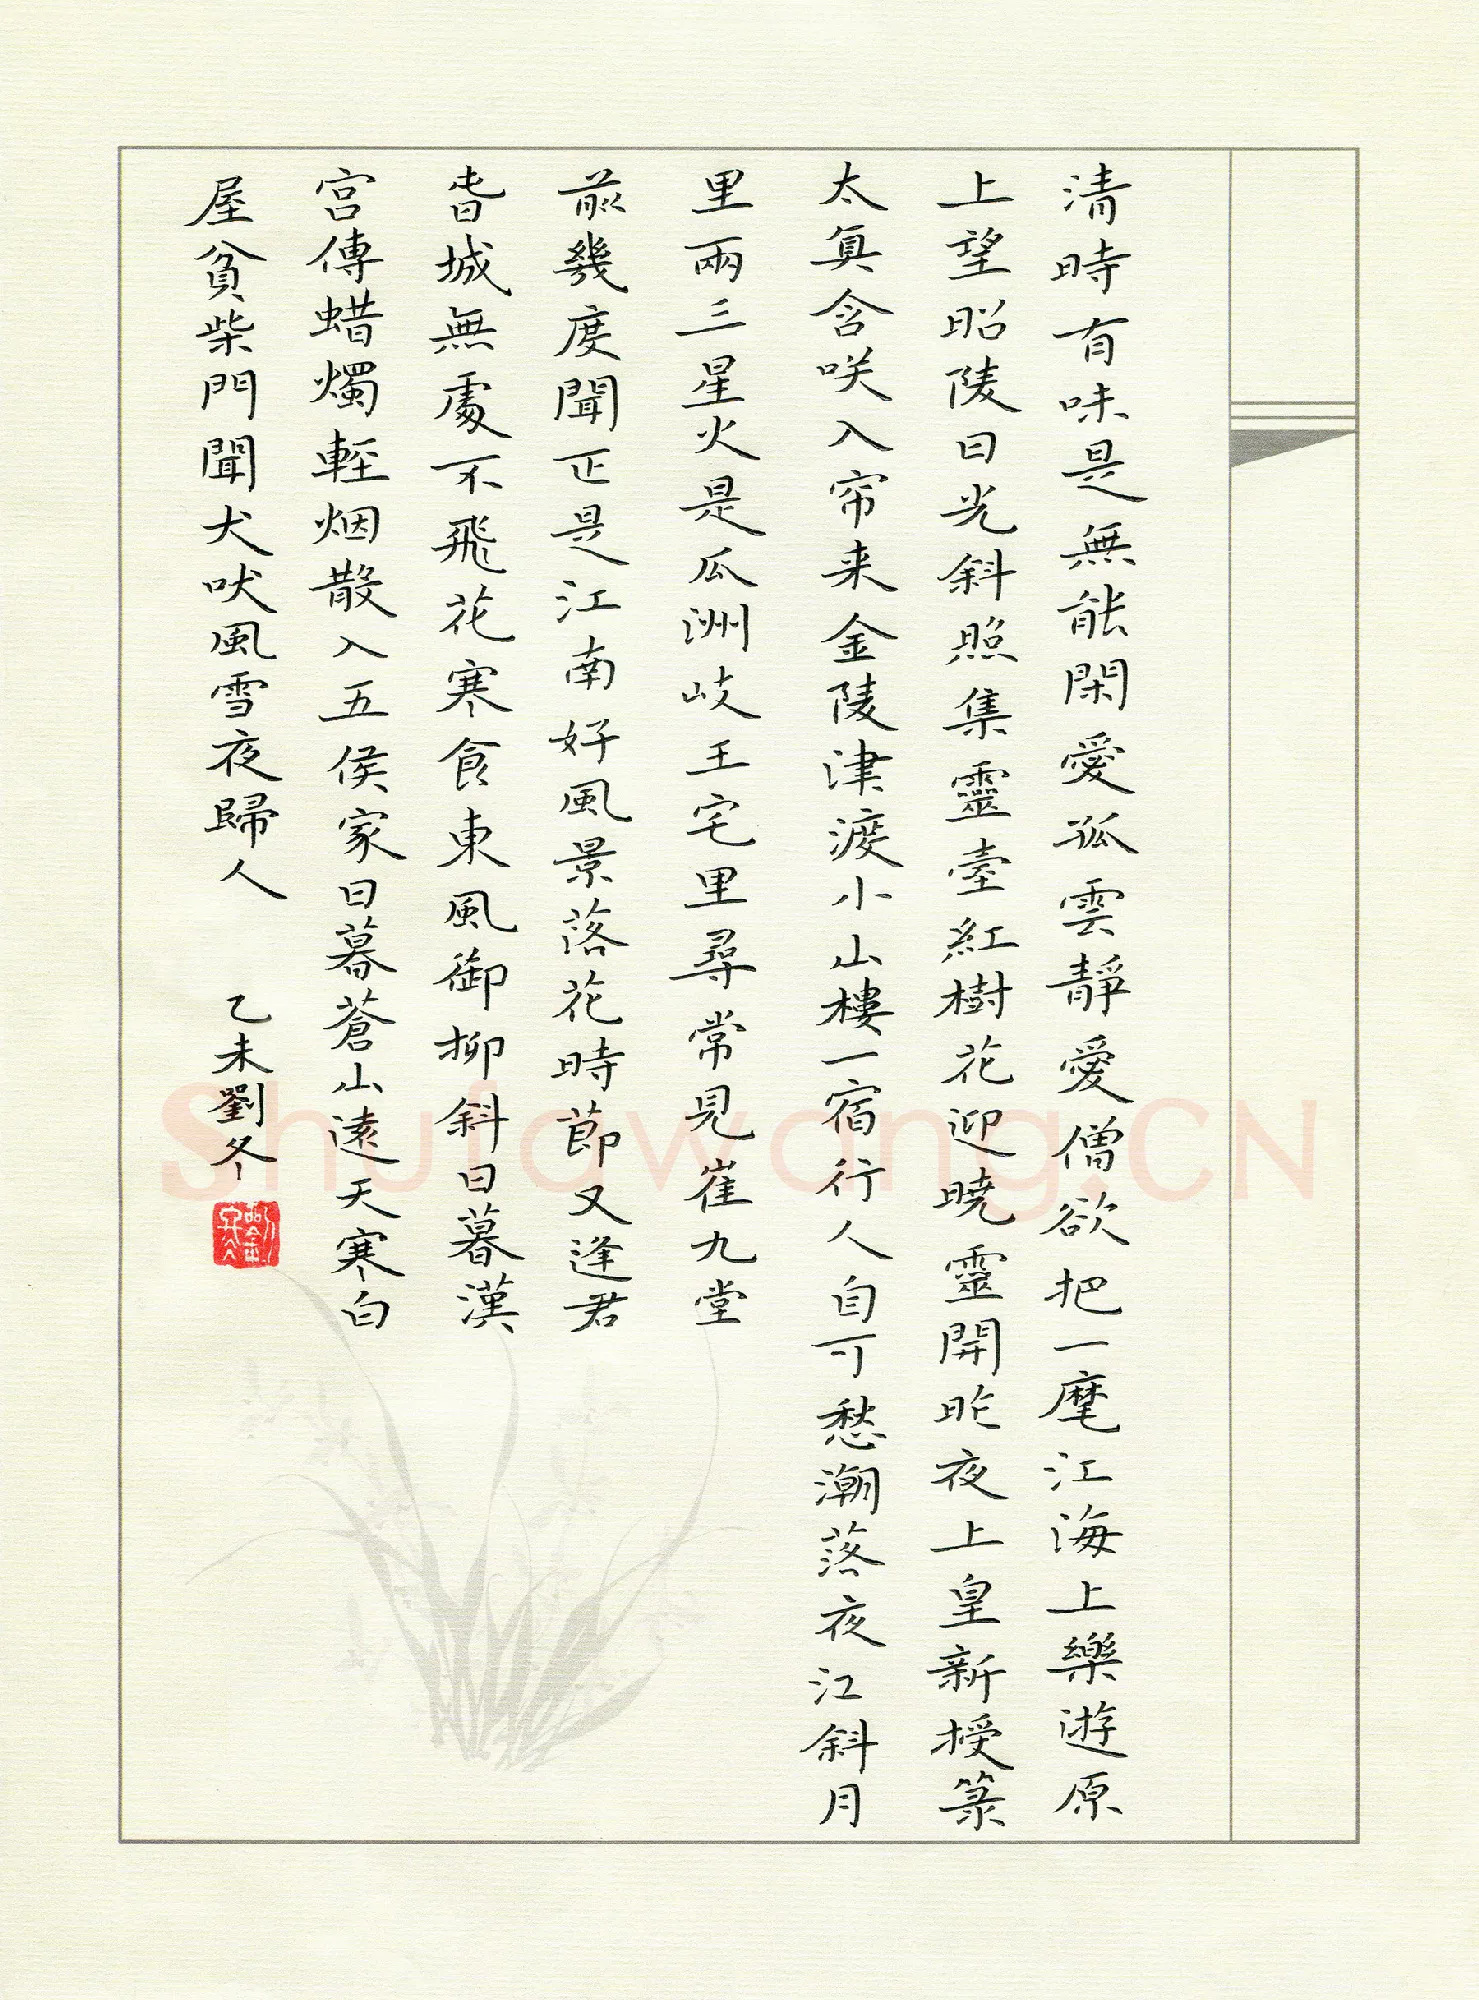 清時有味是無能閑愛孤雲靜愛僧欲把一麾江海上樂遊原
上望昭陵日光斜照集靈臺紅樹花迎曉靈開昨夜上皇新授籙
太真含咲入帘来金陵津渡小山樓一宿行人自可愁潮落夜江斜月
里兩三星火是瓜洲岐王宅里尋常見崔九堂
前幾度聞正是江南好風景落花時節又逢君
春城無處不飛花寒食東風御柳斜日暮漢
宮傳蜡燭輕烟散入五侯家日暮蒼山遠天寒白
屋貧柴門聞犬吠風雪夜歸人
乙未劉冬
Shufawang.CN